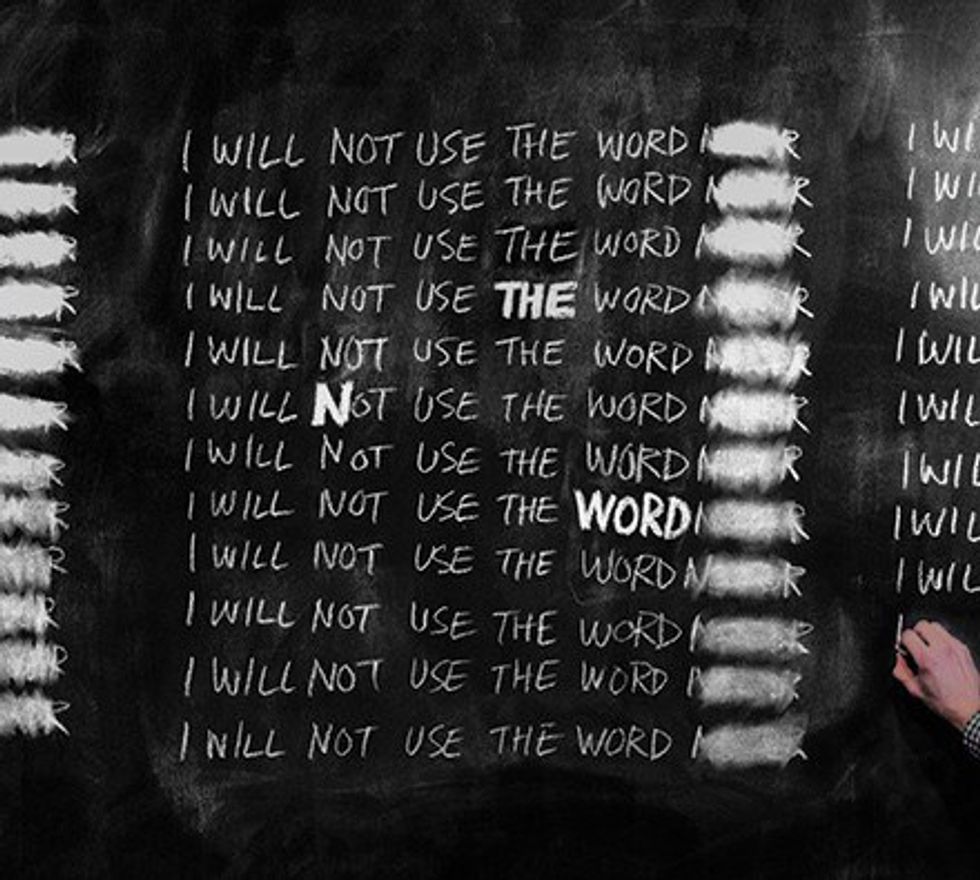 I WILL NOT USE THE WORD
I WILL NOT USE THE WORD
I WILL NOT USE THE WORD
I WILL NOT USE THE WORD
I WILL NOT USE THE WORD
I WILL NOT USE THE WORD
I WILL NOT USE THE WORD
I WILL NOT USE THE WORD
I WILL NOT USE THE WORD
I WILL NOT USE THE WORD
I WILL NOT USE THE WORD
I WILL NOT USE THE WORD